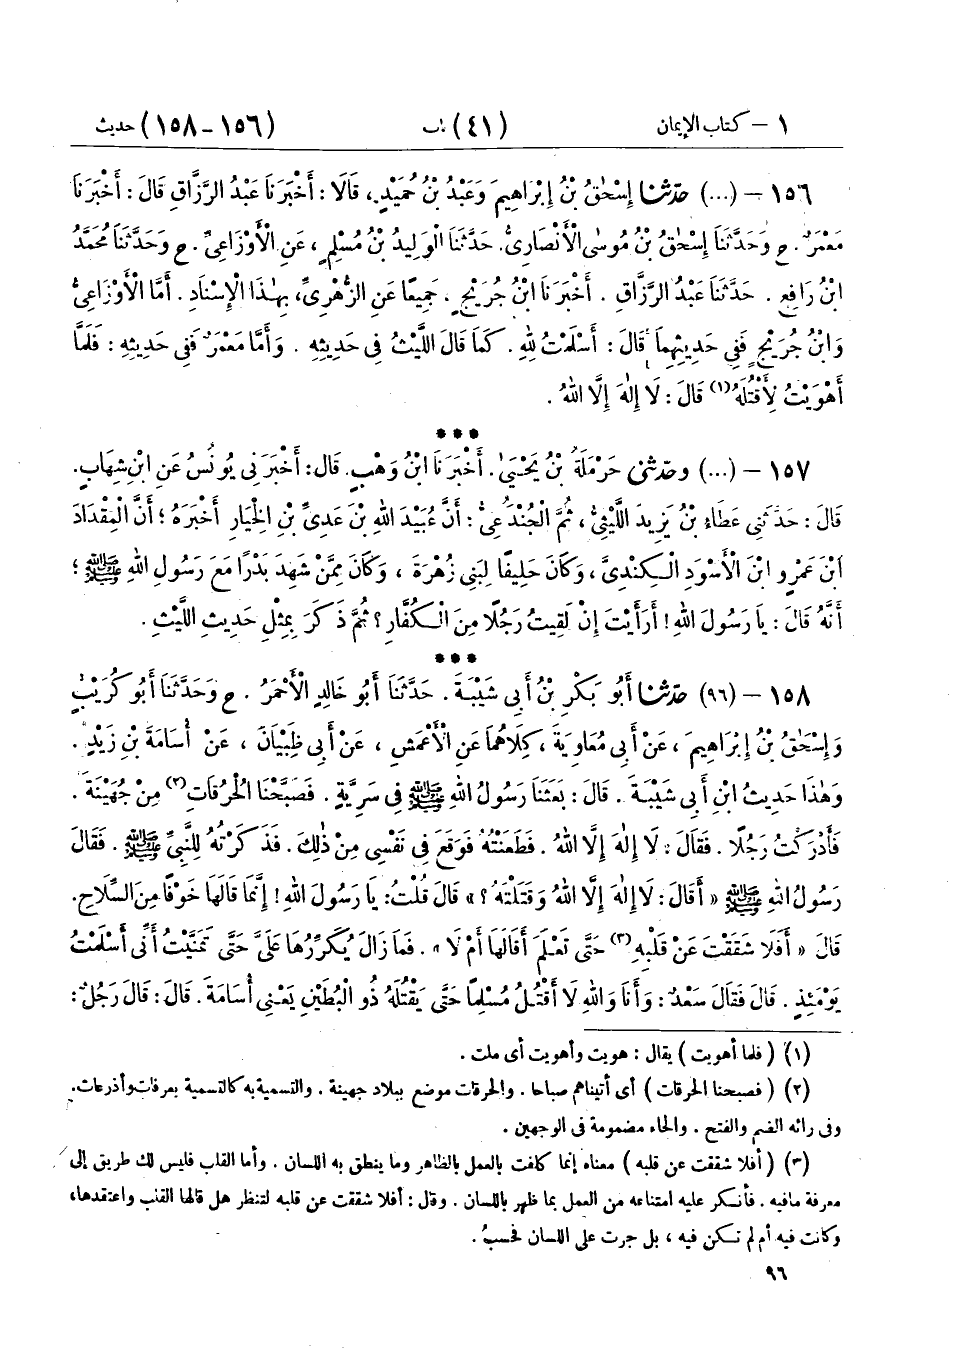 ١ – كتاب الإيمان (٤١) باب (١٥٦ – ١٥٨) حديث
١٥٦ – (...) حدّثنا إِسْحٰقُ بْنُ إِبْرَاهِيمَ وَعَبْدُ بْنُ حُمَيْدٍ، قَالَا : أَخْبَرَنَا عَبْدُ الرَّزَّاقِ قَالَ : أَخْبَرَنَا
مَعْمَرٌ . ح وَحَدَّثَنَا إِسْحٰقُ بْنُ مُوسَى الْأَنْصَارِىُّ. حَدَّثَنَا الْوَلِيدُ بْنُ مُسْلِمٍ ، عَنِ الْأَوْزَاعِىِّ . ح وَحَدَّثَنَا مُحَمَّدُ
ابْنُ رَافِعٍ . حَدَّثَنَا عَبْدُ الرَّزَّاقِ . أَخْبَرَنَا ابْنُ جُرَيْجٍ . جَمِيعًا عَنِ الزُّهْرِىِّ، بِهٰذَا الْإِسْنَادِ . أَمَّا الْأَوْزَاعِىُّ
وَابْنُ جُرَيْجٍ فَفِى حَدِيثِهِمَا قَالَ : أَسْلَمْتُ لِلهِ . كَمَا قَالَ اللَّيْثُ فِى حَدِيثِهِ . وَأَمَّا مَعْمَرٌ فَفِى حَدِيثِهِ : فَلَمَّا
أَهْوَيْتُ لِأَقْتُلَهُ (١) قَالَ : لَا إِلٰهَ إِلَّا اللهُ .
***
١٥٧ – (...) وحدّثنى حَرْمَلَةُ بْنُ يَحْيَىٰ . أَخْبَرَنَا ابْنُ وَهْبٍ. قَالَ: أَخْبَرَنِى يُونُسُ عَنِ ابْنِ شِهَابٍ.
قَالَ : حَدَّثَنِى عَطَاءُ بْنُ يَزِيدَ اللَّيْثِىُّ، ثُمَّ الْجُنْدَعِىُّ : أَنَّ عُبَيْدَ اللهِ بْنَ عَدِىِّ بْنِ الْخِيَارِ أَخْبَرَهُ ؛ أَنَّ الْمِقْدَادَ
ابْنَ عَمْرٍو ابْنَ الْأَسْوَدِ الْكِنْدِىَّ ، وَكَانَ حَلِيفًا لِبَنِى زُهْرَةَ ، وَكَانَ مِمَّنْ شَهِدَ بَدْرًا مَعَ رَسُولِ اللهِ ﷺ ؛
أَنَّهُ قَالَ : يَا رَسُولَ اللهِ ! أَرَأَيْتَ إِنْ لَقِيتُ رَجُلًا مِنَ الْكُفَّارِ ؟ ثُمَّ ذَكَرَ بِمِثْلِ حَدِيثِ اللَّيْثِ .
***
١٥٨ – (٩٦) حدّثنا أَبُو بَكْرِ بْنُ أَبِى شَيْبَةَ . حَدَّثَنَا أَبُو خَالِدٍ الْأَحْمَرُ . ح وَحَدَّثَنَا أَبُو كُرَيْبٍ
وَإِسْحٰقُ بْنُ إِبْرَاهِيمَ ، عَنْ أَبِى مُعَاوِيَةَ ، كِلَاهُمَا عَنِ الْأَعْمَشِ ، عَنْ أَبِى ظَبْيَانَ ، عَنْ أُسَامَةَ بْنِ زَيْدٍ .
وَهٰذَا حَدِيثُ ابْنِ أَبِى شَيْبَةَ . قَالَ : بَعَثَنَا رَسُولُ اللهِ ﷺ فِى سَرِيَّةٍ . فَصَبَّحْنَا الْحُرُقَاتِ (٢) مِنْ جُهَيْنَةَ .
فَأَدْرَكْتُ رَجُلًا . فَقَالَ : لَا إِلٰهَ إِلَّا اللهُ . فَطَعَنْتُهُ فَوَقَعَ فِى نَفْسِى مِنْ ذٰلِكَ . فَذَكَرْتُهُ لِلنَّبِىِّ ﷺ . فَقَالَ
رَسُولُ اللهِ ﷺ « أَقَالَ : لَا إِلٰهَ إِلَّا اللهُ وَقَتَلْتَهُ ؟ » قَالَ قُلْتُ: يَا رَسُولَ اللهِ ! إِنَّمَا قَالَهَا خَوْفًا مِنَ السِّلَاحِ.
قَالَ « أَفَلَا شَقَقْتَ عَنْ قَلْبِهِ (٣) حَتَّى تَعْلَمَ أَقَالَهَا أَمْ لَا » . فَمَا زَالَ يُكَرِّرُهَا عَلَىَّ حَتَّى تَمَنَّيْتُ أَنِّى أَسْلَمْتُ
يَوْمَئِذٍ . قَالَ فَقَالَ سَعْدٌ : وَأَنَا وَاللهِ لَا أَقْتُلُ مُسْلِمًا حَتَّى يَقْتُلَهُ ذُو الْبُطَيْنِ يَعْنِى أُسَامَةَ . قَالَ : قَالَ رَجُلٌ :
(١) ( فلما أهويت ) يقال : هويت وأهويت أى ملت .
(٢) ( فصبحنا الحرقات ) أى أتيناهم صباحا . والحرقات موضع ببلاد جهينة . والتسمية به كالتسمية بعرفات وأذرعات.
وفى رائه الضم والفتح . والحاء مضمومة فى الوجهين .
(٣) ( أفلا شققت عن قلبه ) معناه إنما كلفت بالعمل بالظاهر وما ينطق به اللسان . وأما القلب فليس لك طريق إلى
معرفة مافيه . فأنكر عليه امتناعه من العمل بما ظهر باللسان . وقال : أفلا شققت عن قلبه لتنظر هل قالها القلب واعتقدها،
وكانت فيه أم لم تكن فيه ، بل جرت على اللسان فحسبُ .
٩٦